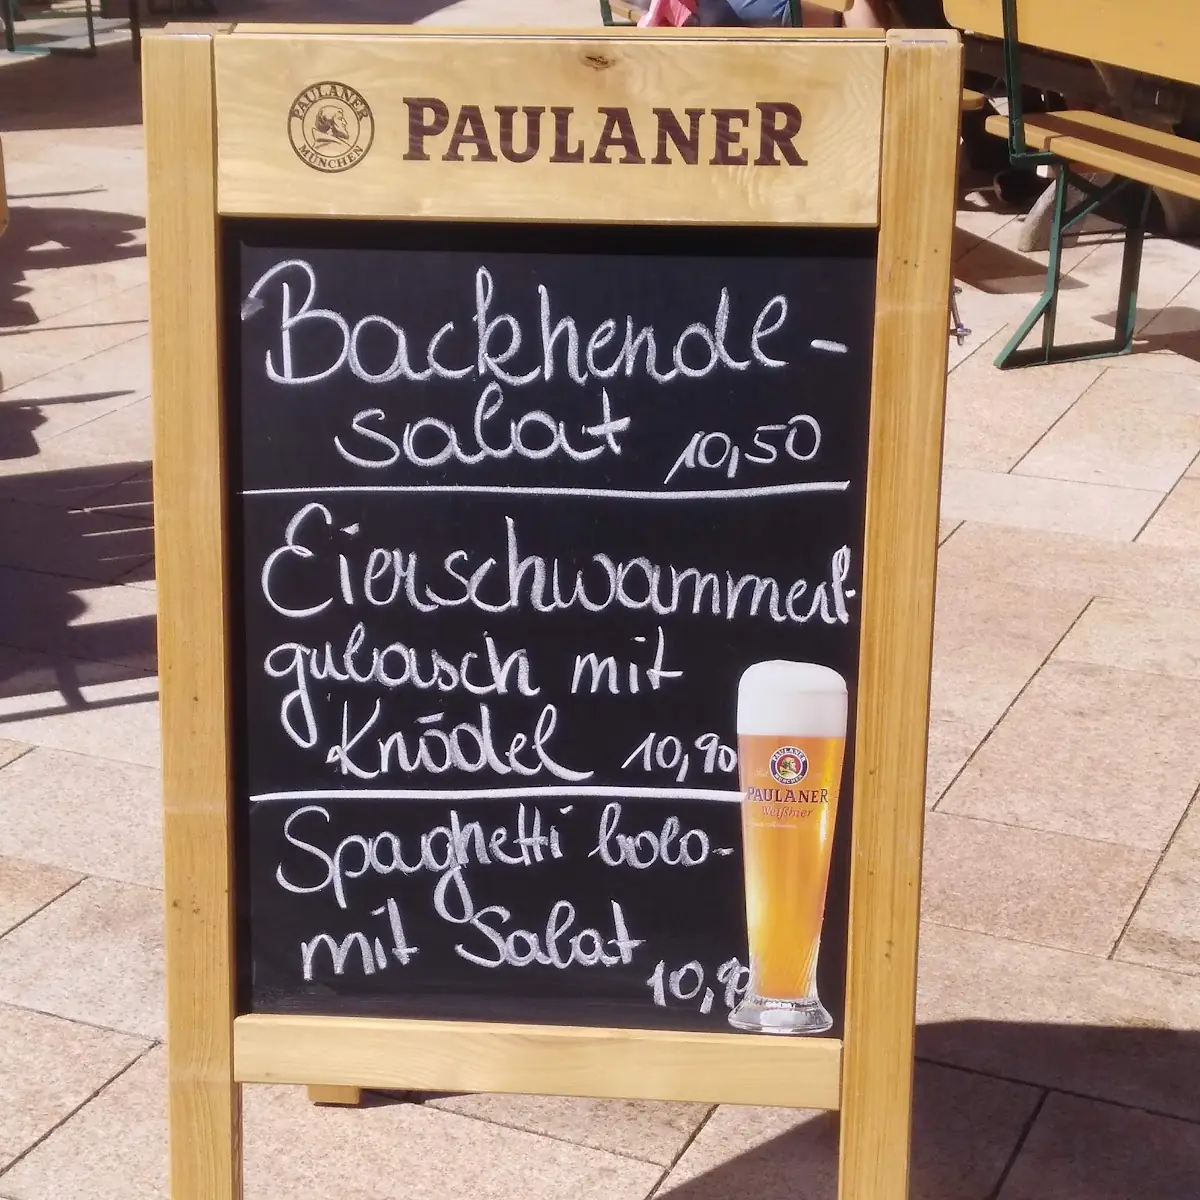 PAULANER
MÜNCHEN
PAULANER
Backhendl-
salat 10,50
Eierschwammerl-
gulasch mit
Knödel 10,90
Spaghetti bolo-
mit Salat
10,90
PAULANER
MÜNCHEN
PAULANER
Weißbier